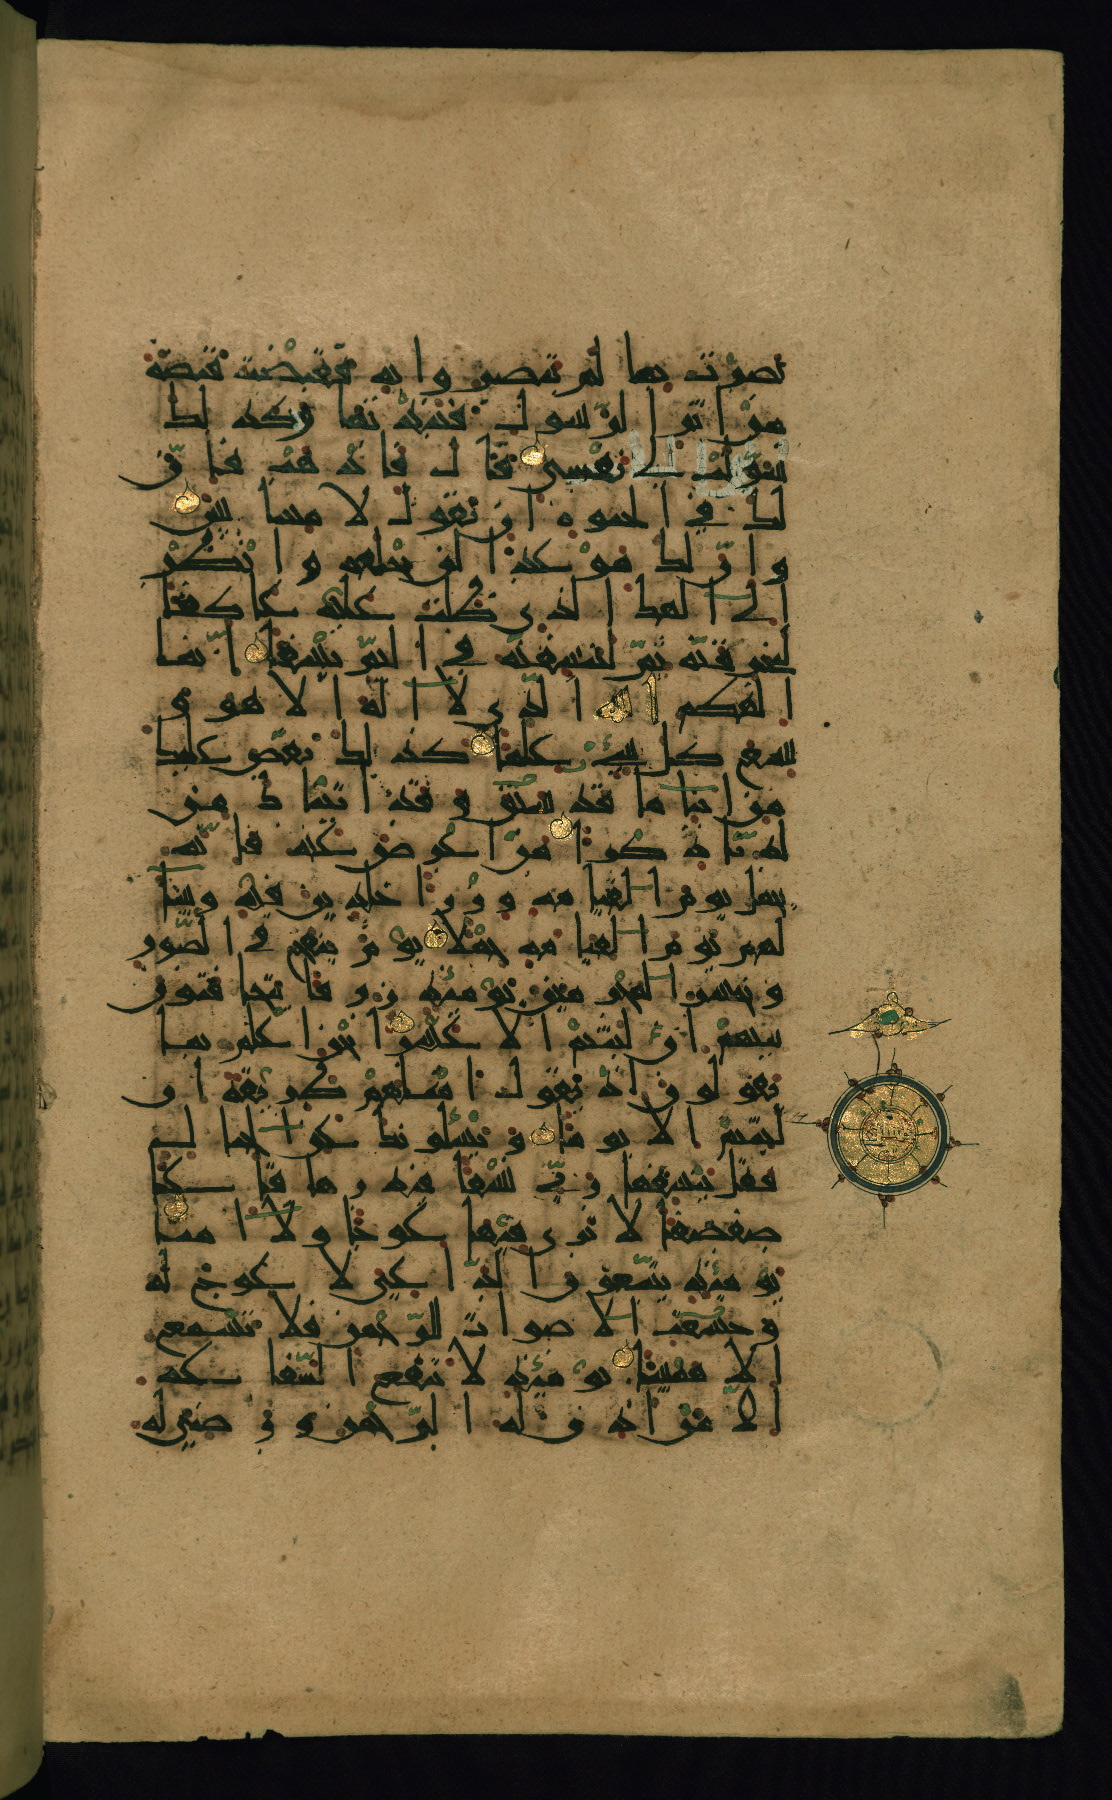 بصرت بما لم يبصروا به فقبضت قبضة
من اثر الرسول فنبذتها وكذلك
سولت لي نفسي قال فاذهب فان
لك في الحيوة ان تقول لا مساس
وان لك موعدا لن تخلفه وانظر
الى الهك الذي ظلت عليه عاكفا
لنحرقنه ثم لننسفنه في اليم نسفا انما
الهكم الله الذي لا اله الا هو و
سع كل شيء علما كذلك نقص عليك
من انبا ما قد سبق وقد اتيناك من
لدنا ذكرا من اعرض عنه فانه
يحمل يوم القيامة وزرا خالدين فيه وسا
لهم يوم القيامة حملا يوم ينفخ في الصور
ونحشر المجرمين يومئذ زرقا يتخافتون
بينهم ان لبثتم الا عشرا نحن اعلم بما
يقولون اذ يقول امثلهم طريقة ان
لبثتم الا يوما ويسئلونك عن الجبال
فقل ينسفها ربي نسفا فيذرها قاعا
صفصفا لا ترى فيها عوجا ولا امتا
يومئذ يتبعون الداعي لا عوج له
وخشعت الاصوات للرحمن فلا تسمع
الا همسا يومئذ لا تنفع الشفاعة
الا من اذن له الرحمن ورضي له